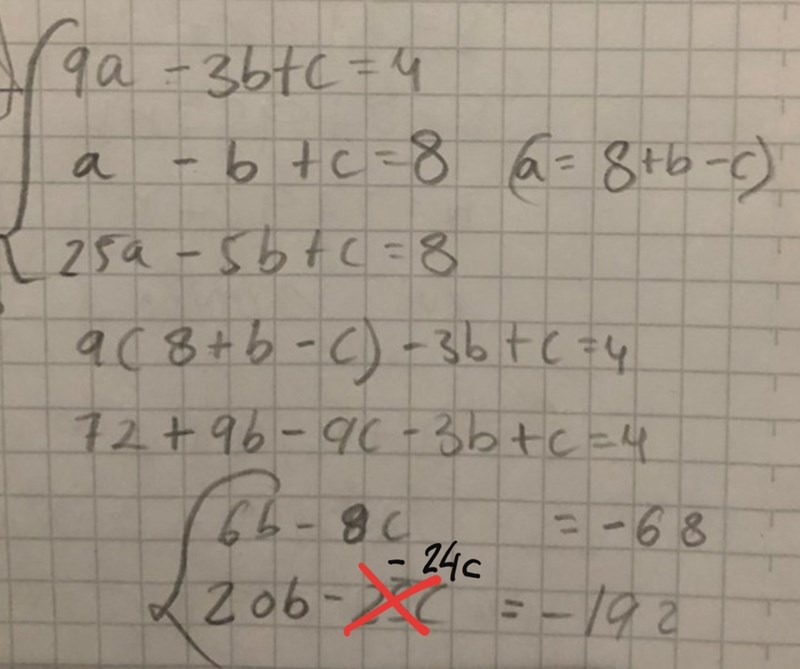 9a - 3b + c = 4
a - b + c = 8 (a = 8 + b - c)
25a - 5b + c = 8
9(8 + b - c) - 3b + c = 4
72 + 9b - 9c - 3b + c = 4
6b - 8c = -68
- 24c
20b - = -192